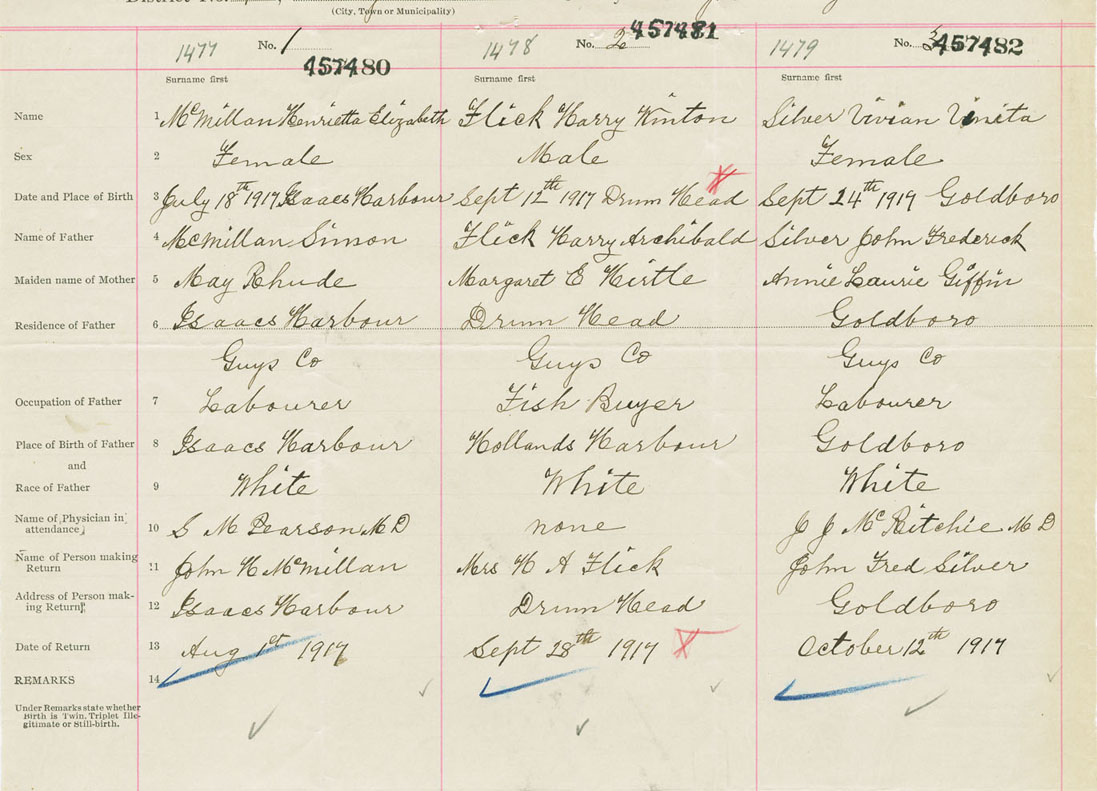 District No.
(City, Town or Municipality)
1477 No. 1 457480
1478 No. 2 457481
1479 No. 3 457482
Surname first Surname first Surname first
Name 1 McMillan Henrietta Elizabeth Flick Harry Winton Silver Vivian Vinita
Sex 2 Female Male Female
Date and Place of Birth 3 July 18th 1917 Isaacs Harbour Sept 12th 1917 Drum Head Sept 24th 1917 Goldboro
Name of Father 4 McMillan Simon Flick Harry Archibald Silver John Frederick
Maiden name of Mother 5 May Rhude Margaret E Hirtle Annie Laurie Giffin
Residence of Father 6 Isaacs Harbour Drum Head Goldboro
Guys Co Guys Co Guys Co
Occupation of Father 7 Labourer Fish Buyer Labourer
Place of Birth of Father 8 Isaacs Harbour Hollands Harbour Goldboro
and
Race of Father 9 White White White
Name of Physician in attendance 10 S M Pearson M D none J J McRitchie M D
Name of Person making Return 11 John H McMillan Mrs H A Flick John Fred Silver
Address of Person making Return 12 Isaacs Harbour Drum Head Goldboro
Date of Return 13 Aug 1st 1917 Sept 28th 1917 October 12th 1917
REMARKS 14
Under Remarks state whether
Birth is Twin, Triplet Ille-
gitimate or Still-birth.